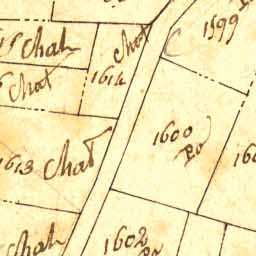 1599
Chat
Chat
1614
Chat
1600
Po
1613 Chat
Chat
1602
Po